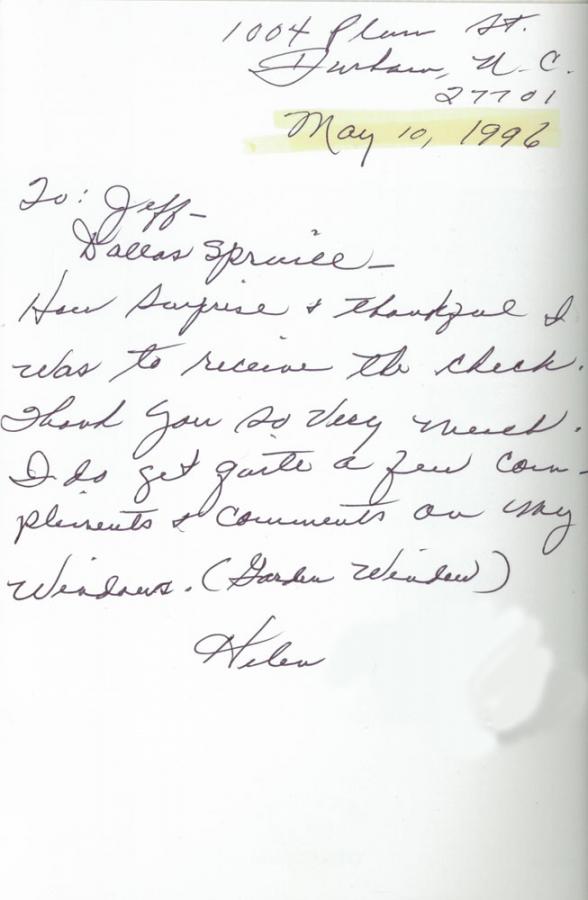 1004 Plum St.
Durham, N.C.
27701
May 10, 1996
To: Jeff -
Dallas Spruill -
How surprise & thankful I
was to receive the check.
Thank you so very much.
I do get quite a few com-
pliments & comments on my
Windows. (Garden Window)
Helen